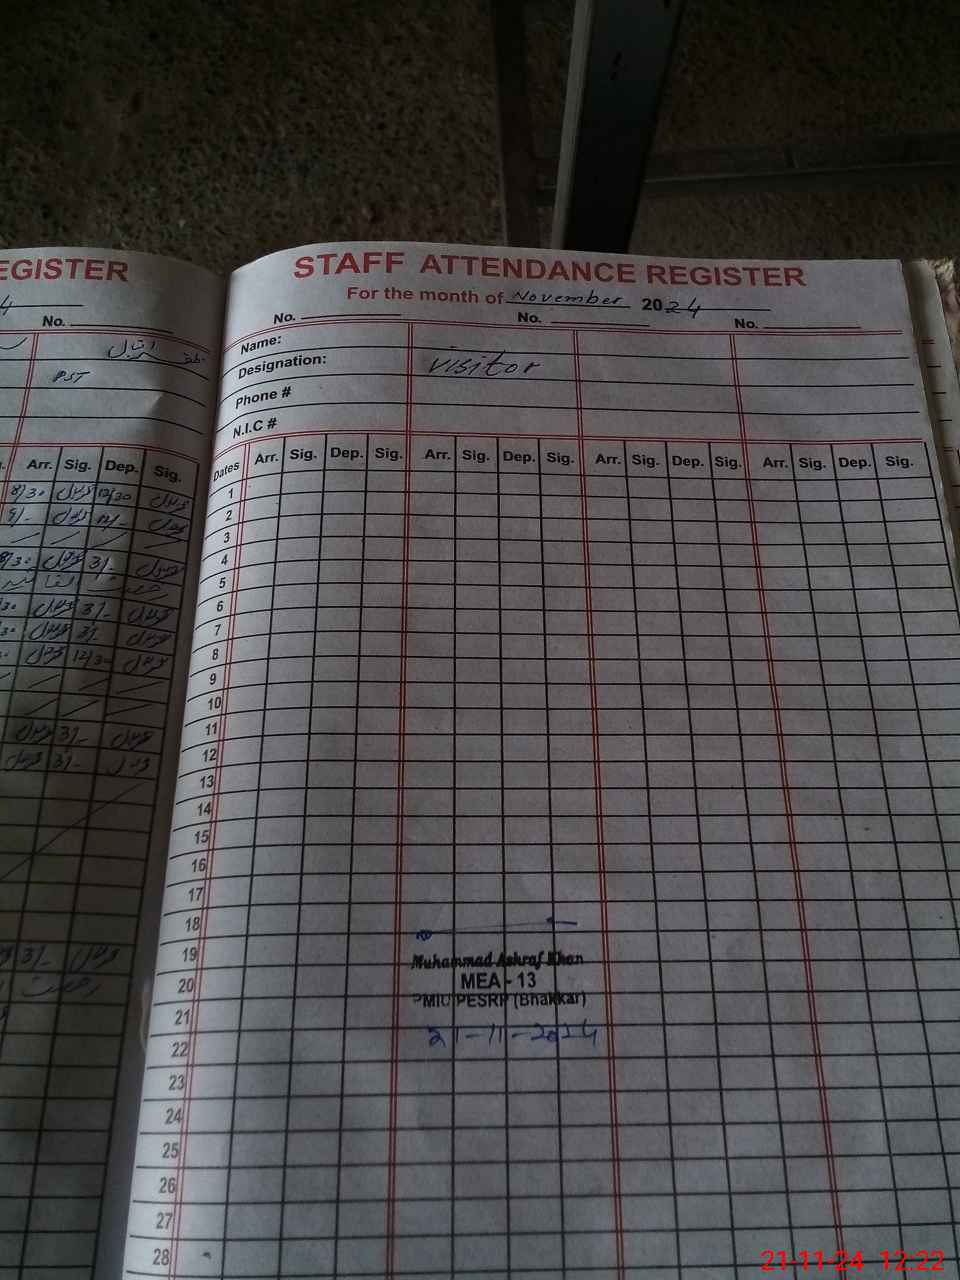 EGISTER
4
No.
PST
Arr. Sig. Dep. Sig.
8/30 12/30
9/- 12/-
8/30 3/-
30 3/-
30 3/-
12/30
3/-
3/-
3/-
رخصت
STAFF ATTENDANCE REGISTER
For the month of November 2024
No. No. No.
Name:
Designation: Visitor
Phone #
N.I.C #
Dates Arr. Sig. Dep. Sig. Arr. Sig. Dep. Sig. Arr. Sig. Dep. Sig. Arr. Sig. Dep. Sig.
1
2
3
4
5
6
7
8
9
10
11
12
13
14
15
16
17
18
19
Muhammad Ashraf Khan
20 MEA - 13
PMIU PESRP (Bhakkar)
21
21-11-2024
22
23
24
25
26
27
28
21-11-24 12:22